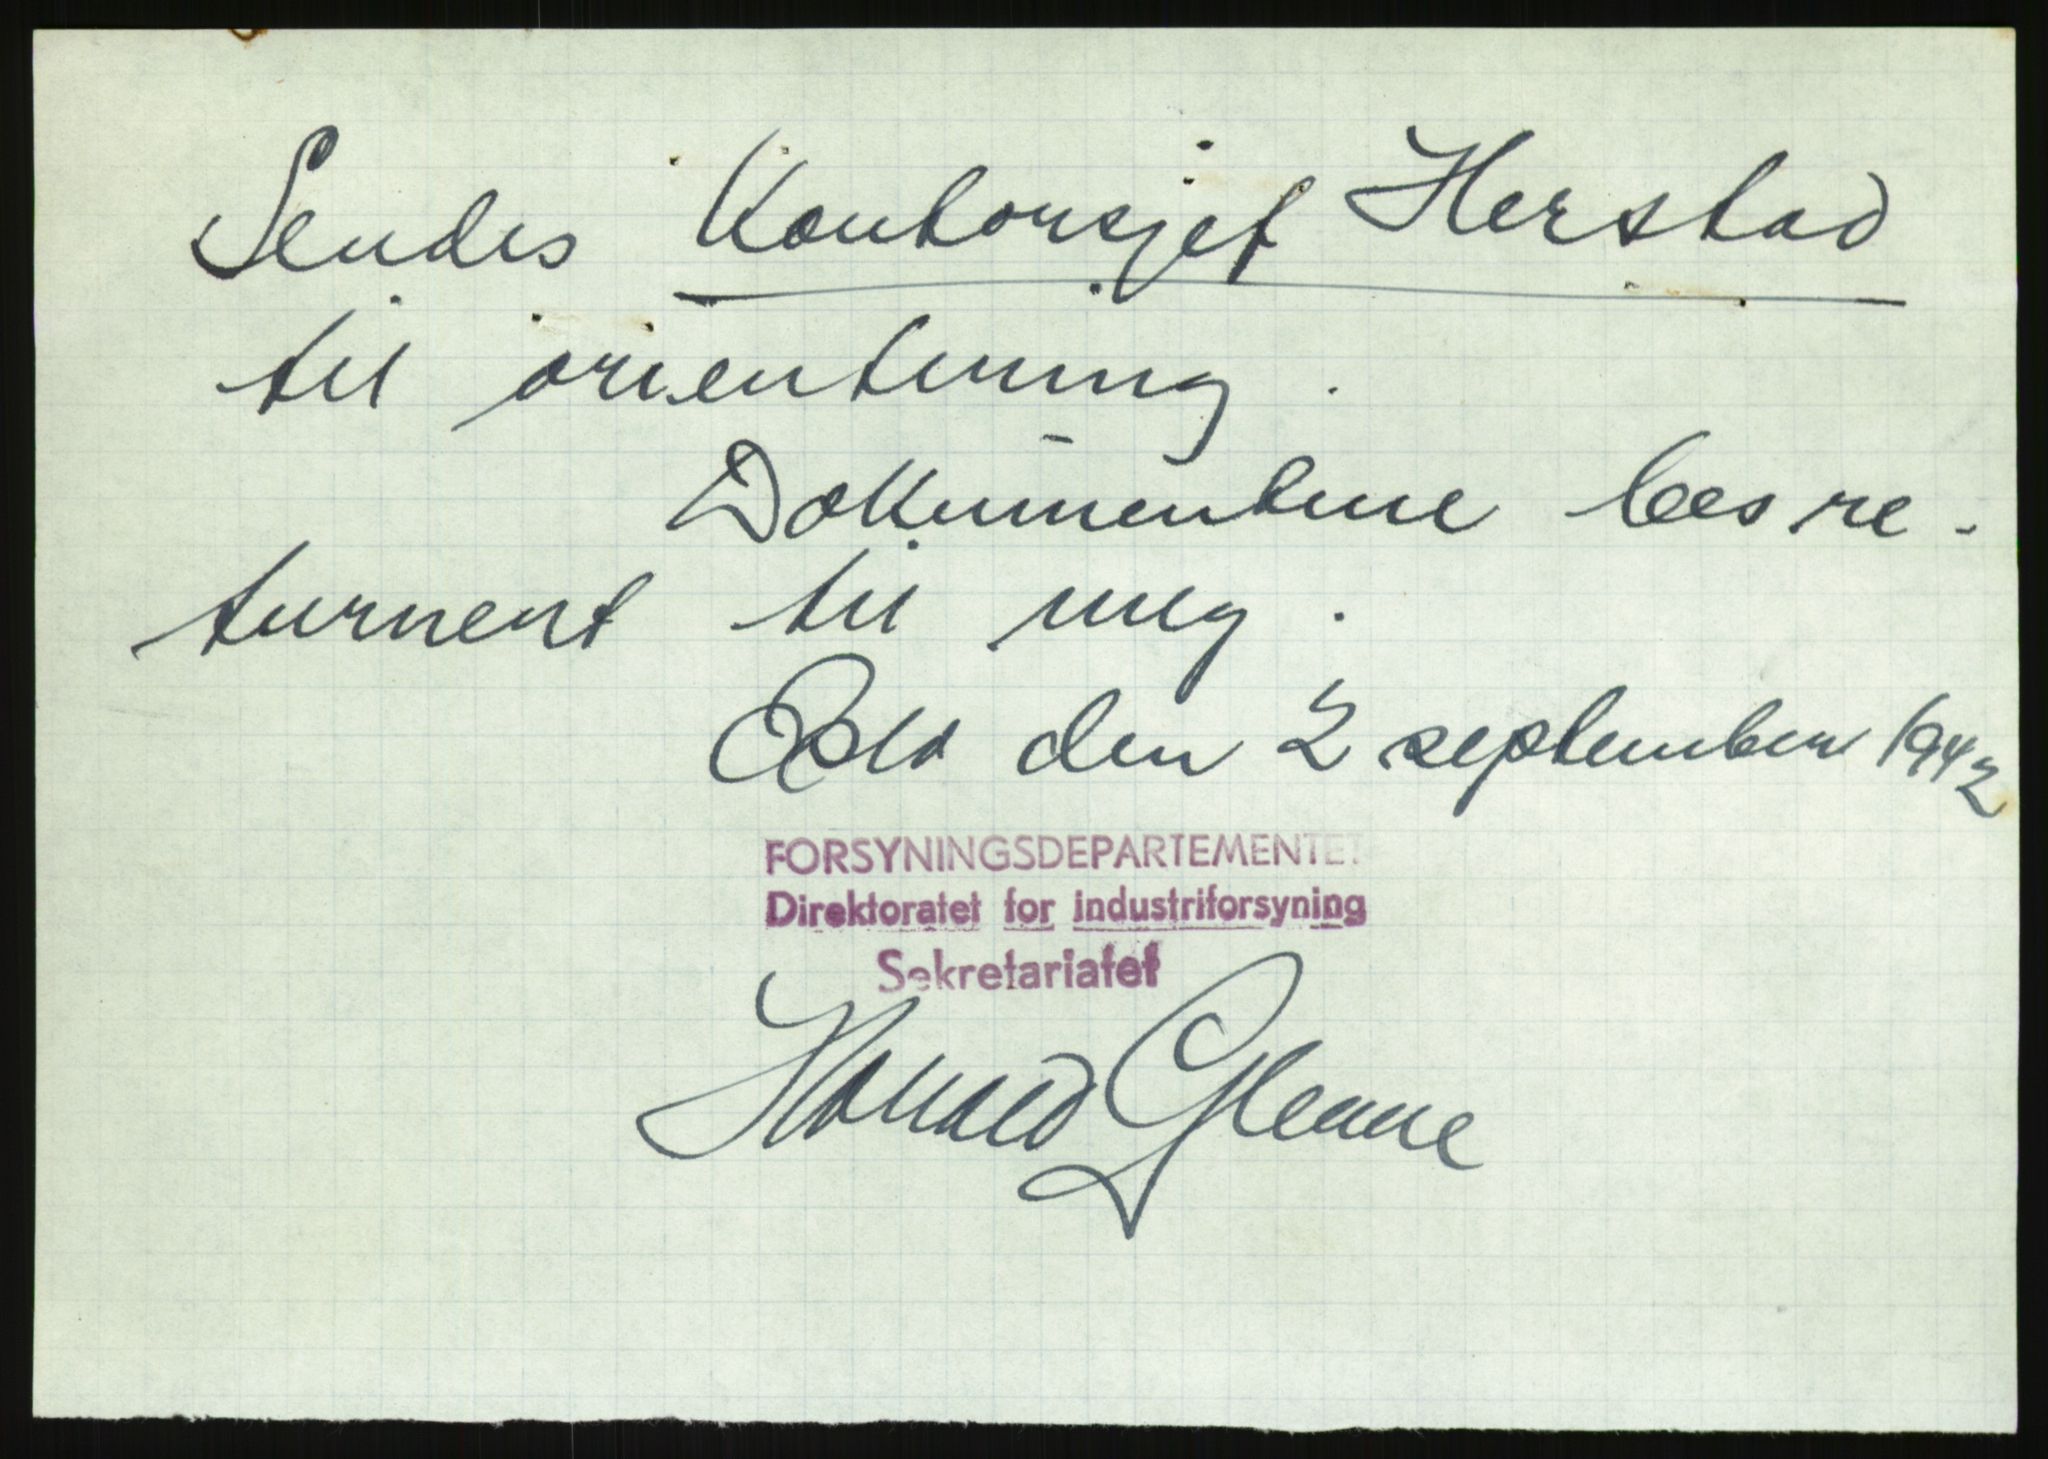 Sendes Kontorsjef Herstad
til orientering.
Dokumentene bes re-
turnert til meg.
Oslo den 2 september 1942
FORSYNINGSDEPARTEMENTET
Direktoratet for industriforsyning
Sekretariatet
Harald Glenne